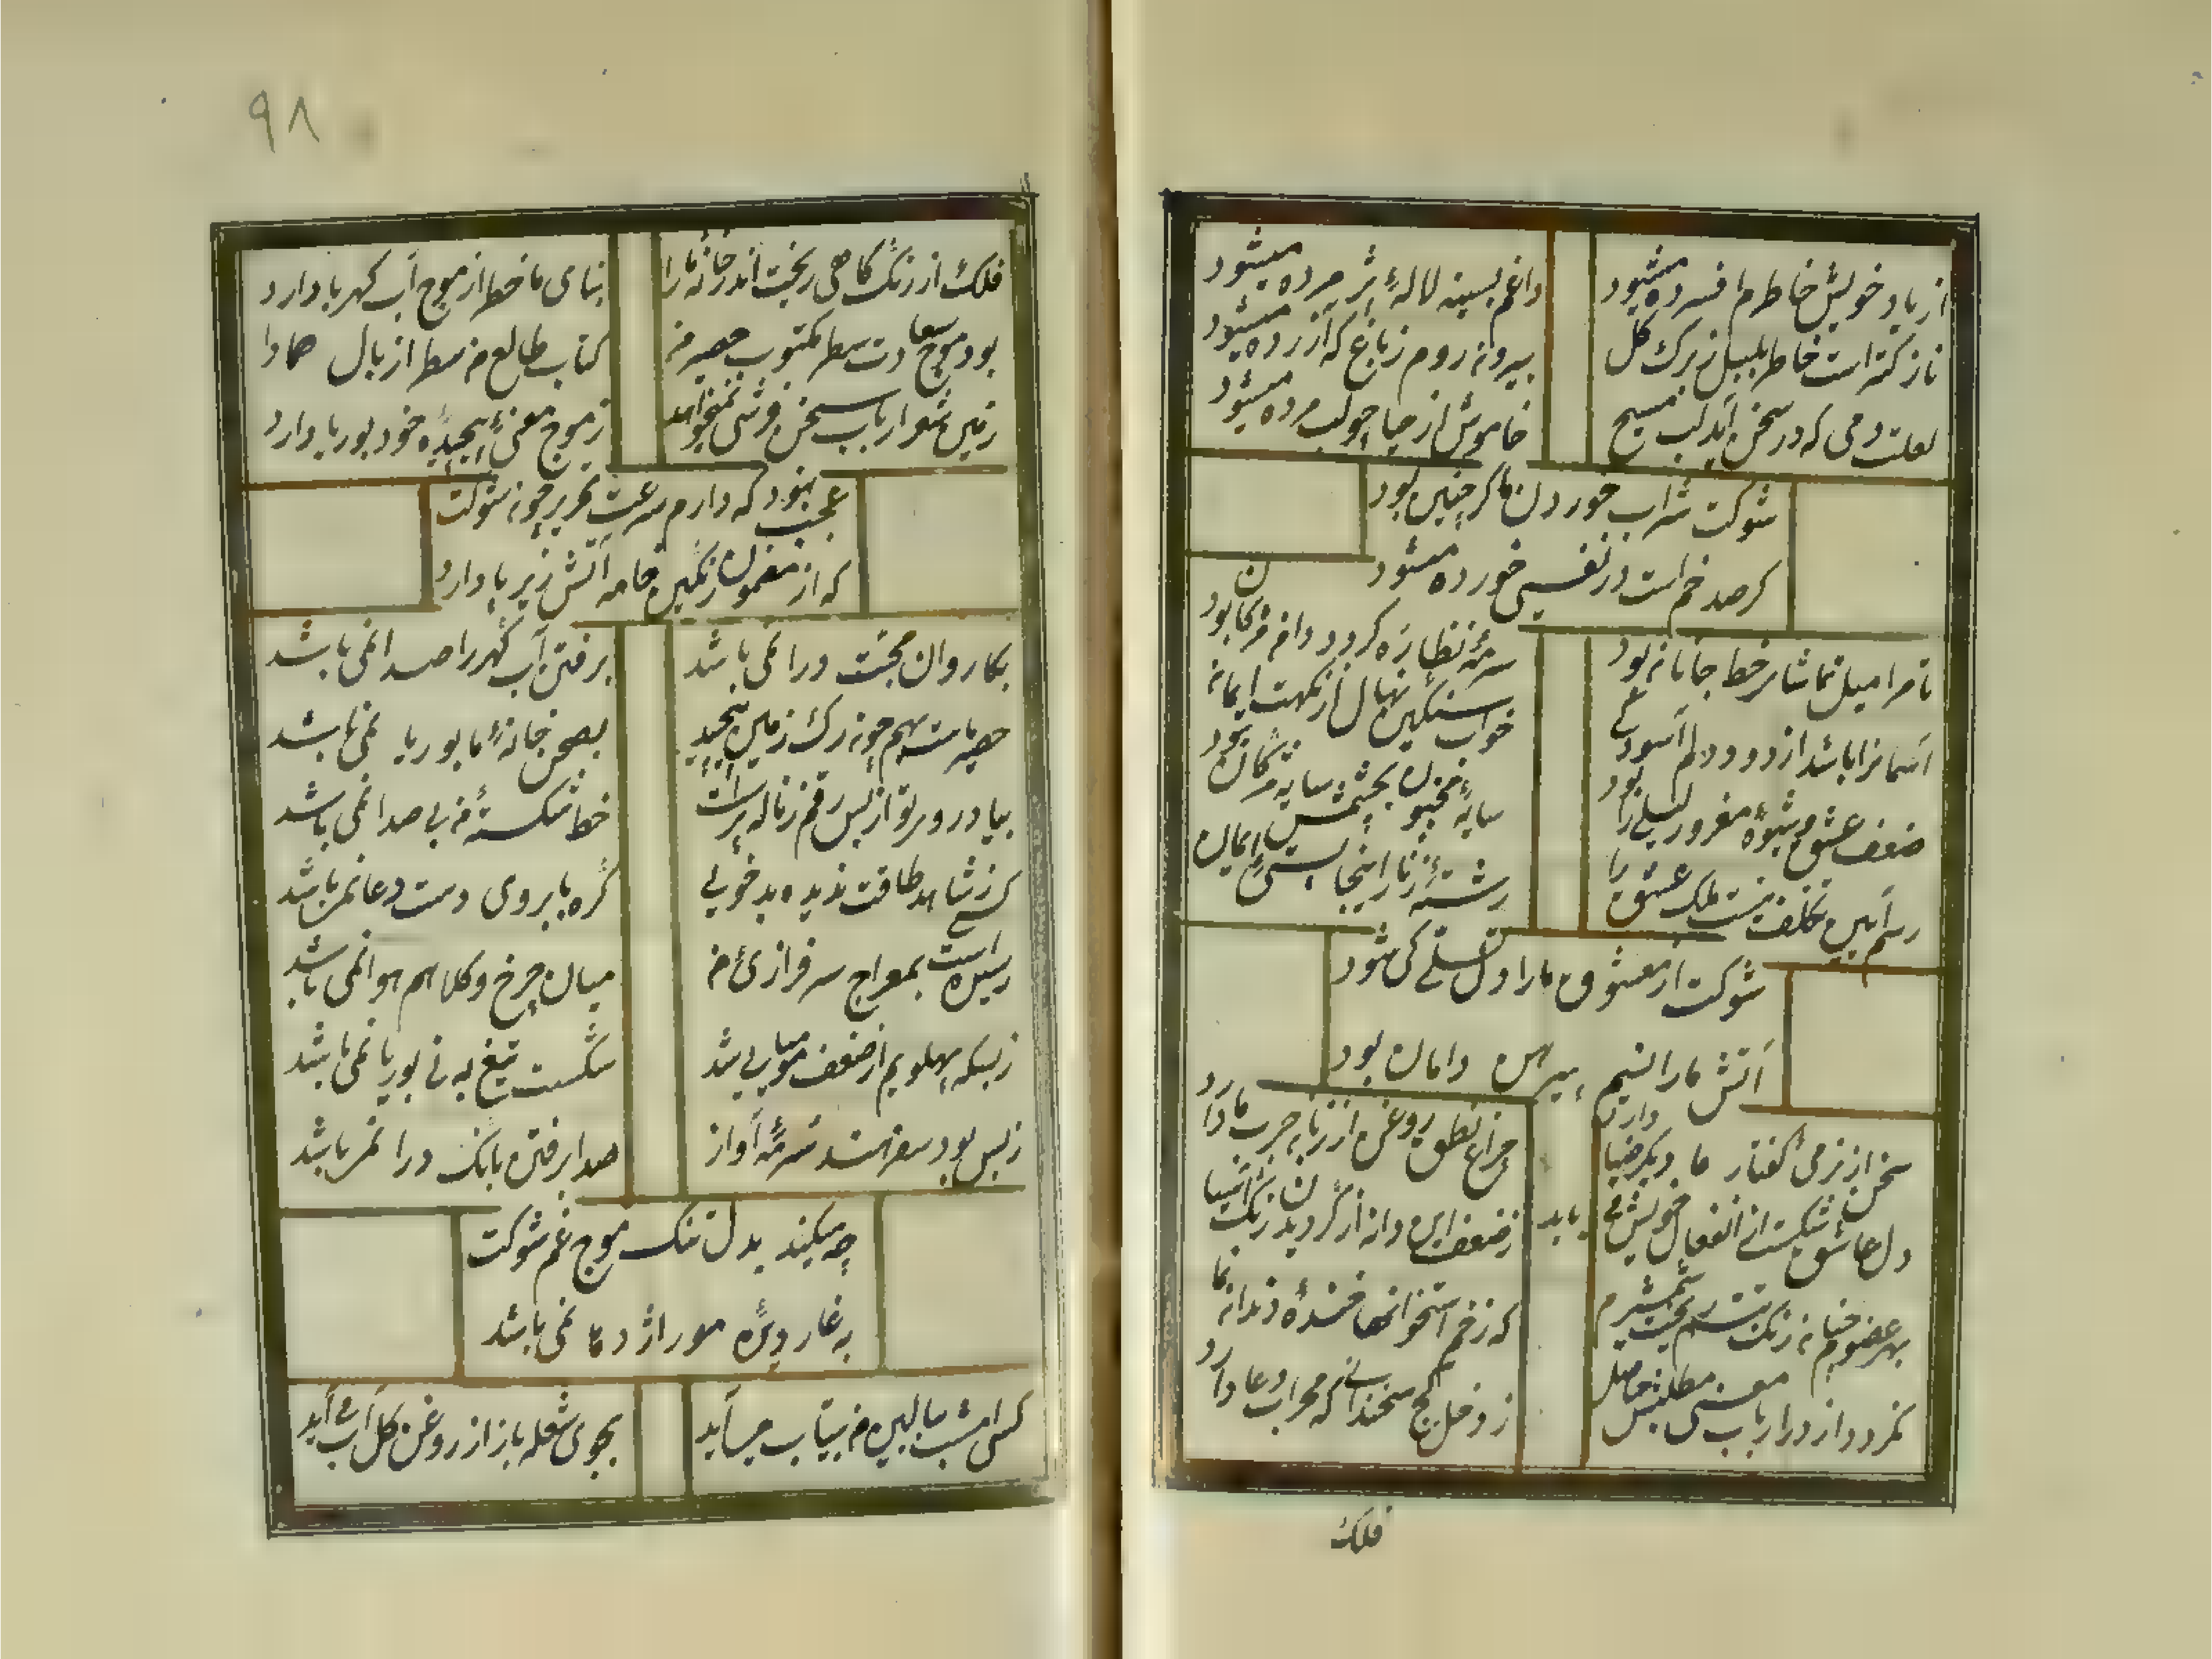 از یاد خویش خاطرم افسرده میشود
داغم بسینه لالهٔ پژمرده میشود
نازکتر است خاطر بلبل ز برک کل
بیرون روم ز باغ که آزرده میشود
لعلت دمی که در سخن آید لب مسیح
خاموش از حیا چو لب مرده میشود
شوکت شراب خوردن ما کر چنین بود
کر صد خم است در نفسی خورده میشود
تا مرا میل تماشا بر خط جانان بود
سرمهٔ نظاره کردد
آسمانرا باشد از دود دلم آسودکی
خواب سنکین نهال از نکهت
ضعف عشقم شیوهٔ مغرور لیلی زا بود
سایهٔ مجنون بچشمش سایه مژکان بود
رسم آیین تکلف نیست ملک عشق را
رشتهٔ زنار اینجا
شوکت از معشوق ما را دل تسلی کی شود
آتش ما را نسیم پیراهن دامان بود
سخن از نرمی کفتار ما دیکر ضیا دارد
چراغ نطق روغن از زبان چرب ما دارد
دل عاشق شکست از انفعال خویش می یابد
ز ضعف این دانه از کردیدن رنک آسیا
بهر عضوم چنان رنک تبسم ریخت شمشیرم
که زخم استخوانها خندهٔ دندان نما
نکردد از در ارباب معنی مطلبش حاصل
ز دخل کج سخندانی که محراب دعا دارد
فلک
۹۸
فلک از رنک کاهی ریخت اندر خانهٔ ما را
بنای ما خطر از موج آب کهربا دارد
بود موج سعادت سطر مکتوب حصیر من
کتاب طالع من سطر از بال هما دارد
زمین شعر ارباب سخن فرشی نمیخواهد
ز موج معنی پیچیدهٔ خود بوریا دارد
عجب نبود که دارم سرعت تحریر چون شوکت
که از مضمون رنکین خامه آتش زیر پا دارد
بکاروان محبت درا نمی باشد
برفتن آب کهر را صدا نمی باشد
حصیر ماست بهم چون رک زمین پیچید
بصحن خانهٔ ما بوریا نمی باشد
بیاد روی تو از بس رقم ز ناله پر است
خط شکستهٔ من بی صدا نمی باشد
کسی ز شاهد طاقت ندیده بدخویی
کره بابروی دست دعا نمی باشد
رسیده است بمعراج سرفرازی من
میان چرخ و کلاهم هوا نمی باشد
ز بسکه پهلویم از ضعف مومیایی شد
شکست تیغ به نی بوریا نمی باشد
ز بس بود سفر هند سرمهٔ آواز
صدا برفتن بانک درا نمی باشد
چه میکند بدل تنک موج غم شوکت
به غار دیدهٔ مور اژدها نمی باشد
کسی امشب ببالین من بیتاب می آید
بجوی شعله باز از روغن کل آب می آید